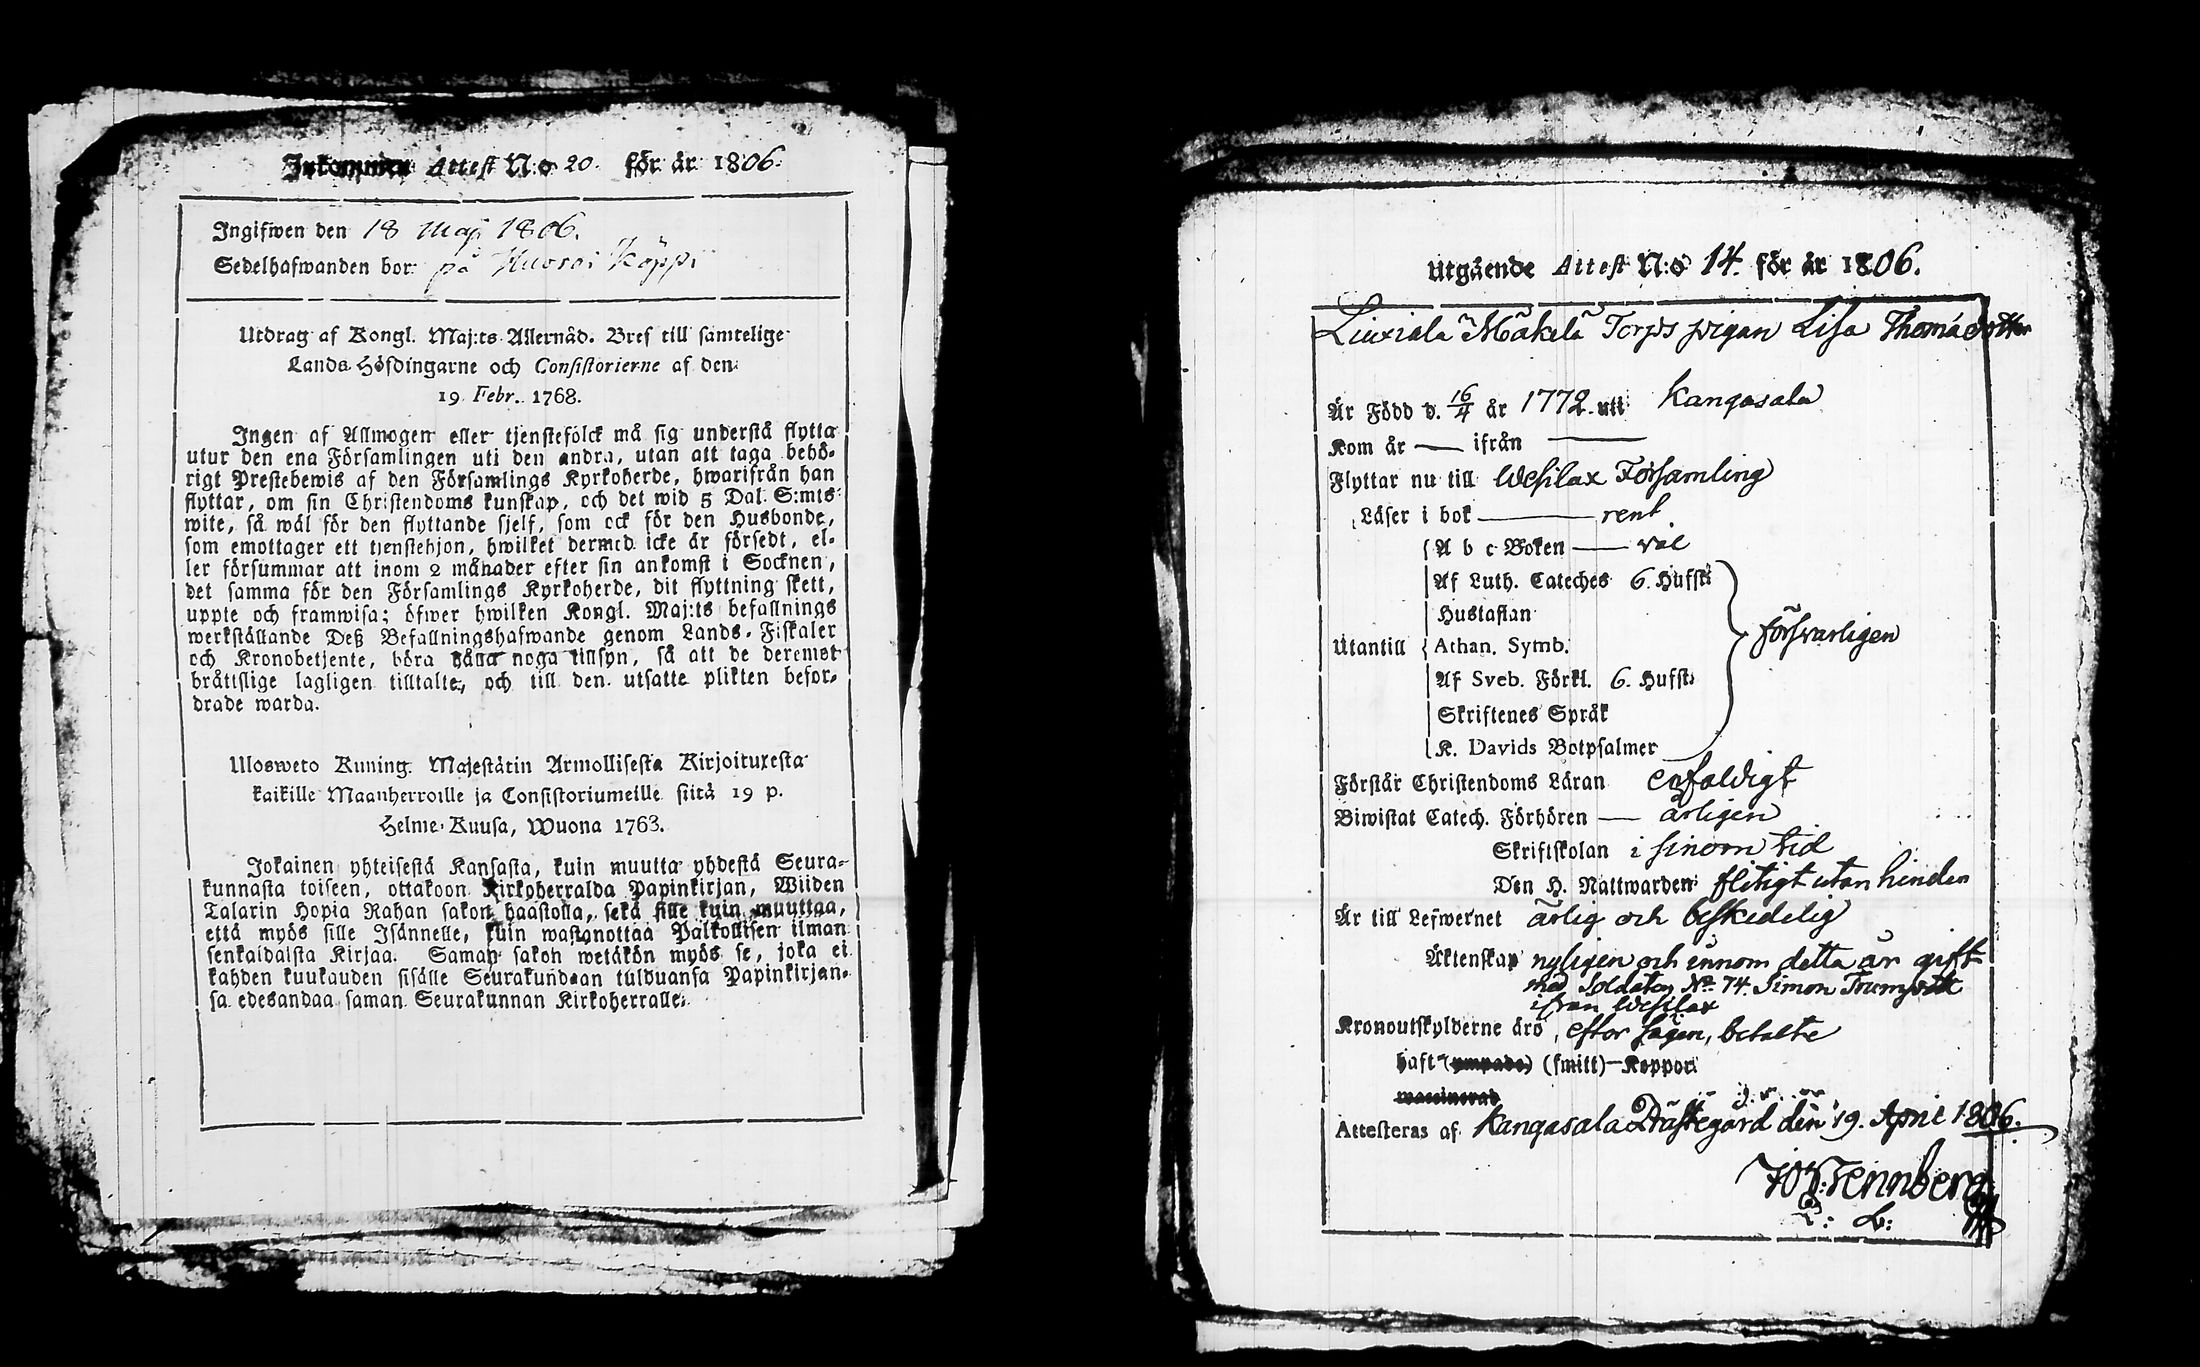 Inkommen Attest N:o 20. för år 1806.
Ingifwen den 18 Maji 1806.
Sedelhafwanden bor på Kuorai Köppi
Utdrag af Kongl. Maj:ts Allernåd. Bref till samtelige
Lands-Höfdingarne och Consistorierne af den
19 Febr. 1768.
Ingen af Allmogen eller tjenstefolck må sig understå flytta
utur den ena Församlingen uti den andra, utan att taga behö-
rigt Prestebewis af den Församlings Kyrkoherde, hwarifrån han
flyttar, om sin Christendoms kunskap, och det wid 5 Dal. S:mts
wite, så wäl för den flyttande sjelf, som ock för den Husbonde,
som emottager ett tjenstehjon, hwilket dermed icke är försedt, el-
ler försummar att inom 2 månader efter sin ankomst i Socknen,
det samma för den Församlings Kyrkoherde, dit flyttning skett,
uppte och framwisa; öfwer hwilken Kongl. Maj:ts befallnings
werkställande Deß Befallningshafwande genom Lands-Fiskaler
och Kronobetjente, böra hålla noga tillsyn, så att de deremot
bråttslige lagligen tilltalte, och till den utsatte plikten befor-
drade warda.
Ulosweto Kuning. Majestätin Armollisesta Kirjoituxesta
kaikille Maanherroille ja Consistoriumeille siitä 19 p.
Helme-Kuusa, Wuona 1763.
Jokainen yhteisestä Kansasta, kuin muutta yhdestä Seura-
kunnasta toiseen, ottakoon Kirkoherralda Papinkirjan, Wiiden
Talarin Hopia Rahan sakon haastolla, sekä sille kuin muuttaa,
että myös sille Isännelle, kuin wastanottaa Palkollisen ilman
senkaldaista Kirjaa. Saman sakon wetäkön myös se, joka ei
kahden kuukauden sisälle Seurakundaan tulduansa Papinkirjan-
sa edesandaa saman Seurakunnan Kirkoherralle.
Utgående Attest N:o 14. för år 1806.
Liuxiala Mäkelä Torps pigan Lisa Thomædotter
Är Född d. 16/4 år 1772. uti Kangasala
Kom år — ifrån —
Flyttar nu till Wesilax Församling
Läser i bok — rent
A b c Boken — wäl
Af Luth. Cateches 6. Hufst:
Hustaflan
Utantill Athan. Symb. försvarligen
Af Sveb. Förkl. 6. Hufst:
Skriftenes Språk
K. Davids Botpsalmer
Förstår Christendoms Läran enfaldigt
Biwistat Catech. Förhören — årligen
Skriftskolan i sinom tid
Den H. Nattwarden flitigt utan hinder
Är till Lefwernet ärlig och beskedelig
Äktenskap nyligen och innom detta år gift
med Soldaten No. 74. Simon
ifrån Wesilax
Kronoutskylderne äro, efter sägen, betalte
haft (ympade) (smitt)-Koppor
waccinerad
Attesteras af Kangasala Prästegård den 19. April 1806.